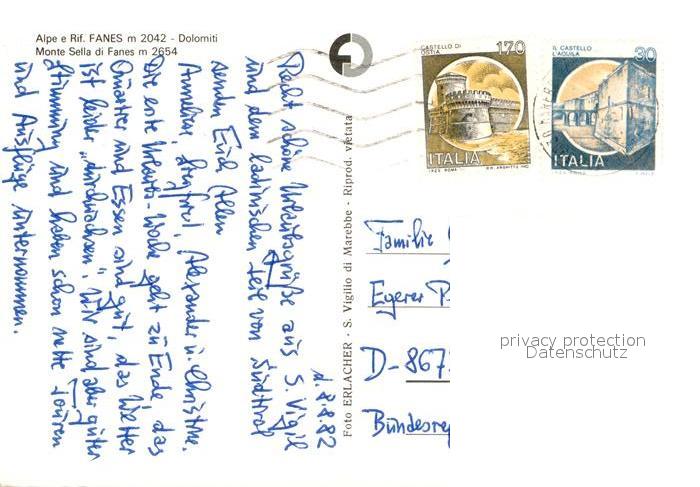 Alpe e Rif. FANES m 2042 - Dolomiti
Monte Sella di Fanes m 2654
d. 8.8.82
Recht schöne Urlaubsgrüße aus S. Vigil
und dem ladinischen Teil von Südtirol
senden Euch Allen
Annelise, Alexander u. Christine.
Die erste Urlaubs-Woche geht zu Ende, das
Quartier und Essen sind gut, das Wetter
ist leider „durchwachsen". Wir sind aber guter
Stimmung und haben schon nette Touren
und Ausflüge unternommen.
Foto ERLACHER - S. Vigilio di Marebbe - Riprod. vietata
CASTELLO DI
OSTIA
170
ITALIA
IL CASTELLO
L'AQUILA
30
ITALIA
Familie
Egerer
D-867
Bundesre
privacy protection
Datenschutz